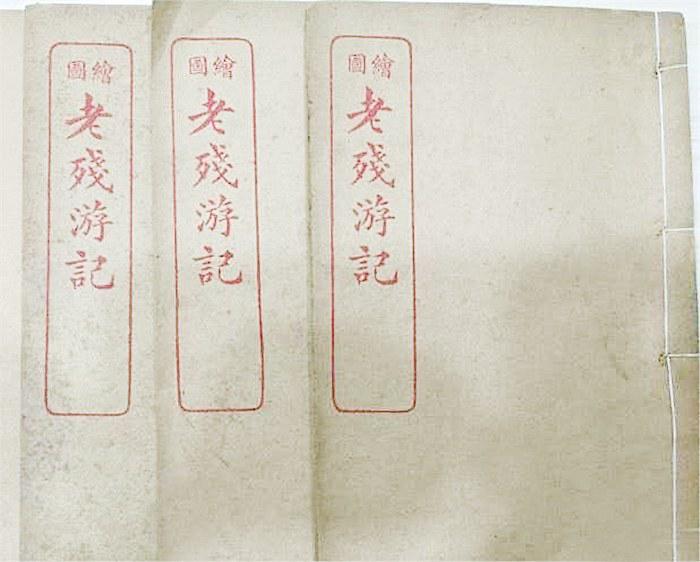 繪圖
老殘游記
繪圖
老殘游記
繪圖
老殘游記